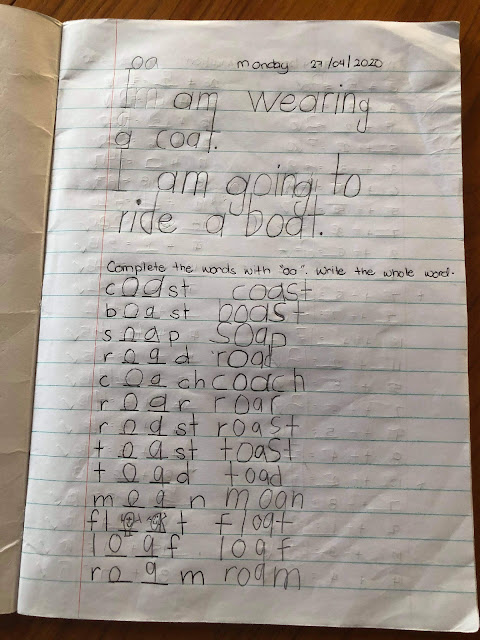 oa monday 27/04/2020
Im am wearing
a coat.
I am going to
ride a boat.
Complete the words with "oa". Write the whole word.
c oa st coast
b oa st boast
s oa p soap
r oa d road
c oa ch coach
r oa r roar
r oa st roast
t oa st toast
t oa d toad
m oa n moan
fl oa t float
l oa f loaf
r oa m roam